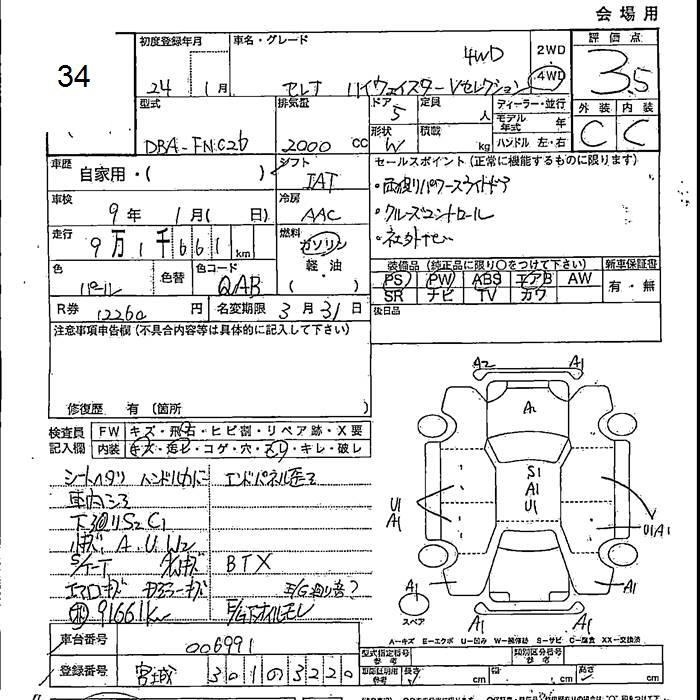 会場用
34
初度登録年月
24年 1月
車名・グレード
4WD
セレナ ハイウェイスター Vセレクション
2WD
4WD
評価点
3.5
型式
DBA-FNC26
排気量
2000 CC
ドア
5
定員
人
形状
W
積載
kg
ディーラー・並行
モデル年式 年
ハンドル 左・右
外装 内装
C C
車歴
自家用・( )
シフト
IAT
セールスポイント(正常に機能するものに限ります)
・両側パワースライドドア
・クルーズコントロール
・社外ナビ
車検
9年 1月( 日)
冷房
AAC
走行
9万1千661km
燃料
ガソリン
軽・油
( )
色
パール
色替
色コード
QAB
装備品(純正品に限り〇をつけて下さい)
PS PW ABS エアB AW
SR ナビ TV カワ
新車保証書
有・無
R券
12260円
名変期限 3月31日
後日品
注意事項申告欄(不具合内容等は具体的に記入して下さい)
修復歴 有(箇所
検査員記入欄
FW キズ・飛石・ヒビ割・リペア跡・X要
内装 キズ・汚レ・コゲ・穴・スレ・キレ・破レ
シートヘタリ ハンドルカバー エンドパネル歪ミ
車内シミ
下廻りS2C1
小キズ、A・U・W2
BTX
エアロキズ
E/G廻り音?
91661km
E/G下オイルモレ
A2 A1
A2
S1
A1
U1
U1
A1
U1A1
A1
スペア
A1
A1 A1
A―キズ E―エクボ U―凹み W―補修跡 S―サビ C―腐食 XX―交換済
車台番号
006991
登録番号
宮城 301の3220
型式指定番号
参考
類別区分番号
参考
長さ cm 幅 cm 高さ cm